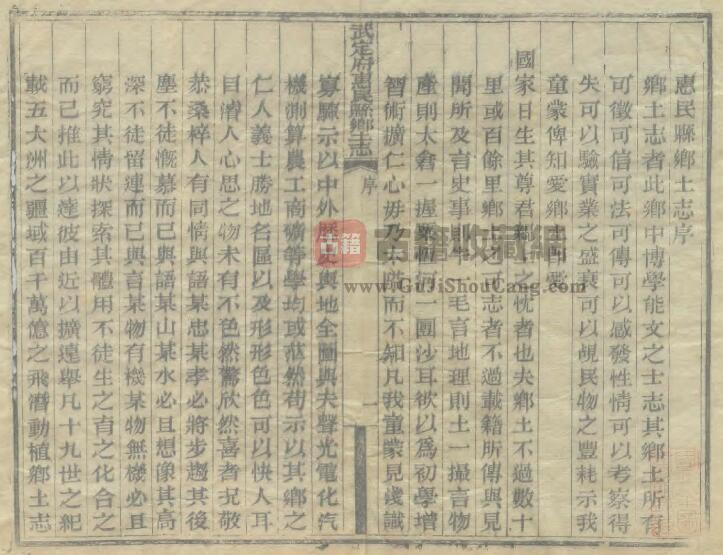 惠民縣鄉土志序
鄉土志者此鄉中博學能文之士志其鄉土所有
可徵可信可法可傳可以感發性情可以考察得
失可以驗實業之盛衰可以覘民物之豐耗示我
童蒙俾知愛鄉土即愛
國家日生其尊君親上之忱者也夫鄉土不過數十
里或百餘里鄉土可志者不過載籍所傳與見
聞所及言史事則牛一毛言地理則土一撮言物
產則太倉一握粟恒河一團沙耳欲以爲初學增
智術擴仁心毋乃未階而不知凡我童蒙見淺識
武定府惠民縣鄉土志
序
一
寡驟示以中外歷史輿地全圖與夫聲光電化汽
機測算農工商礦等學均或茫然苟示以其鄉之
仁人義士勝地名區以及形形色色可以快人耳
目濬人心思之物未有不色然驚欣然喜者况敬
恭桑梓人有同情與語某忠某孝必將步趨其後
塵不徒慨慕而已與語某山某水必且想像其高
深不徒留連而已與言某物有機某物無機必且
窮究其情狀探索其體用不徒生之者之化合之
而已推此以達彼由近以擴遠舉凡十九世之紀
載五大洲之疆域百千萬億之飛潛動植鄉土志
古籍
古籍收藏網
www.GuJiShouCang.com